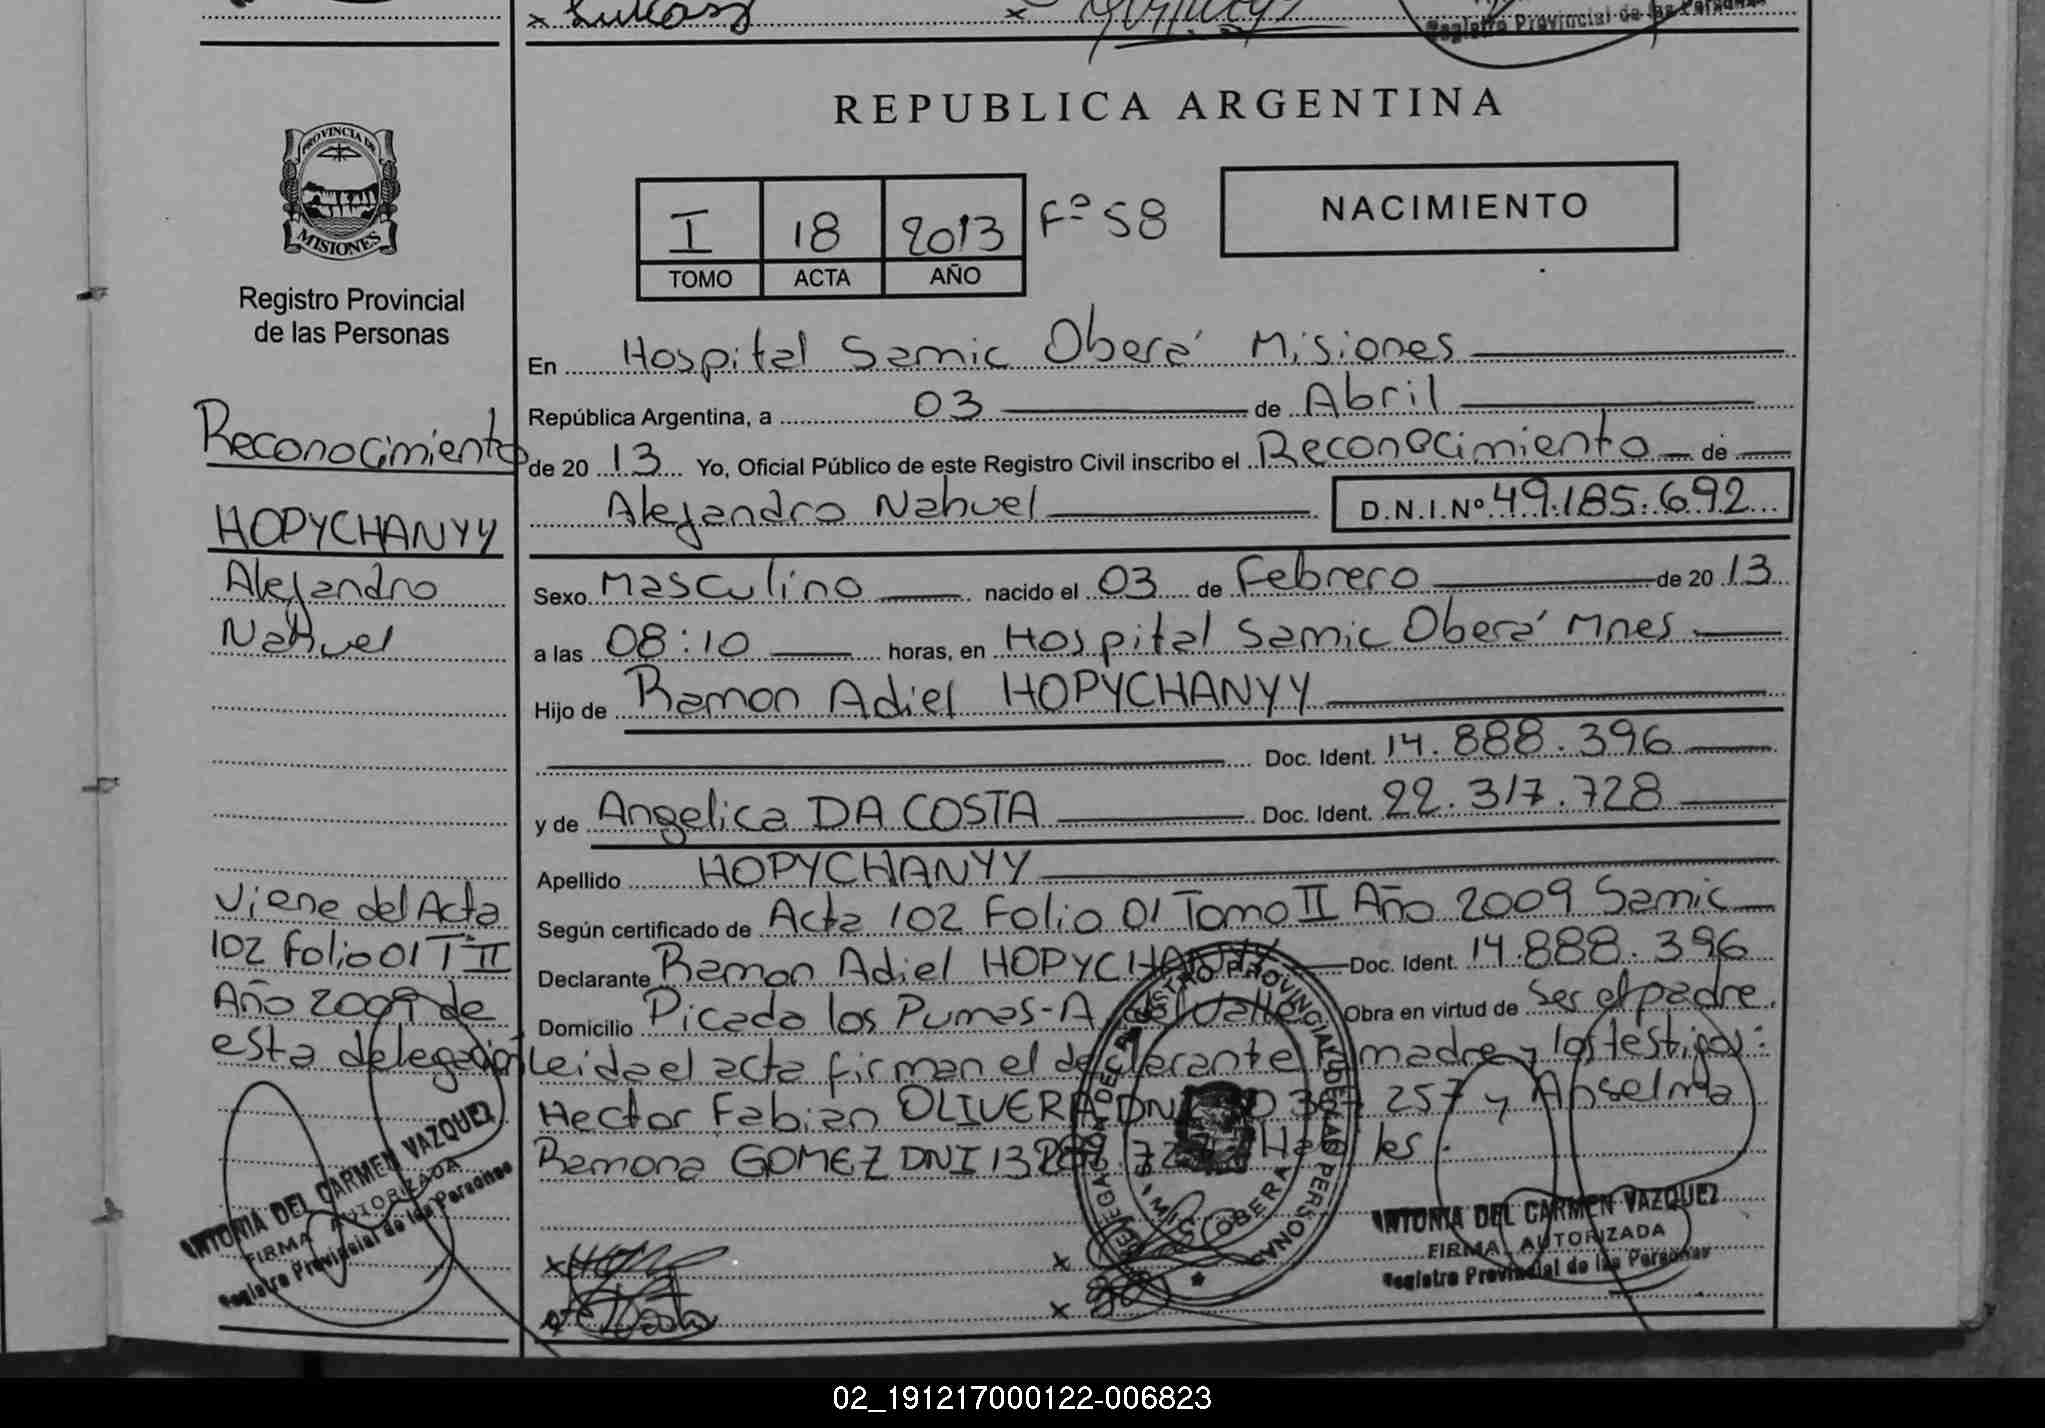 Lukasz
Registro Provincial de las Personas
PROVINCIA DE
MISIONES
Registro Provincial
de las Personas
REPUBLICA ARGENTINA
I 18 2013 Fº 58
TOMO ACTA AÑO
NACIMIENTO
En Hospital Samic Oberá Misiones
República Argentina, a 03 de Abril
de 20 13 Yo, Oficial Público de este Registro Civil inscribo el Reconocimiento de
Alejandro Nahuel D.N.I.Nº 49.185.692
Sexo Masculino nacido el 03 de Febrero de 20 13
a las 08:10 horas, en Hospital Samic Oberá Mnes
Hijo de Ramon Adiel HOPYCHANYY
Doc. Ident. 14.888.396
y de Angelica DA COSTA Doc. Ident. 22.317.728
Apellido HOPYCHANYY
Según certificado de Acta 102 Folio 01 Tomo II Año 2009 Samic
Declarante Ramon Adiel HOPYCHANYY Doc. Ident. 14.888.396
Domicilio Picada los Pumas-A. del Valle Obra en virtud de ser el padre.
Leida el acta firman el declarante la madre y los testigos:
Hector Fabian OLIVERA DNI 257 y Anselma
Ramona GOMEZ DNI 13 Habiles.
Reconocimiento
HOPYCHANYY
Alejandro
Nahuel
Viene del Acta
102 Folio 01 Tº II
Año 2009 de
esta delegación
ANTONIA DEL CARMEN VAZQUEZ
FIRMA AUTORIZADA
Registro Provincial de las Personas
REGISTRO PROVINCIAL DE LAS PERSONAS
DELEGACION
SAMIC OBERA
ANTONIA DEL CARMEN VAZQUEZ
FIRMA AUTORIZADA
Registro Provincial de las Personas
02_191217000122-006823